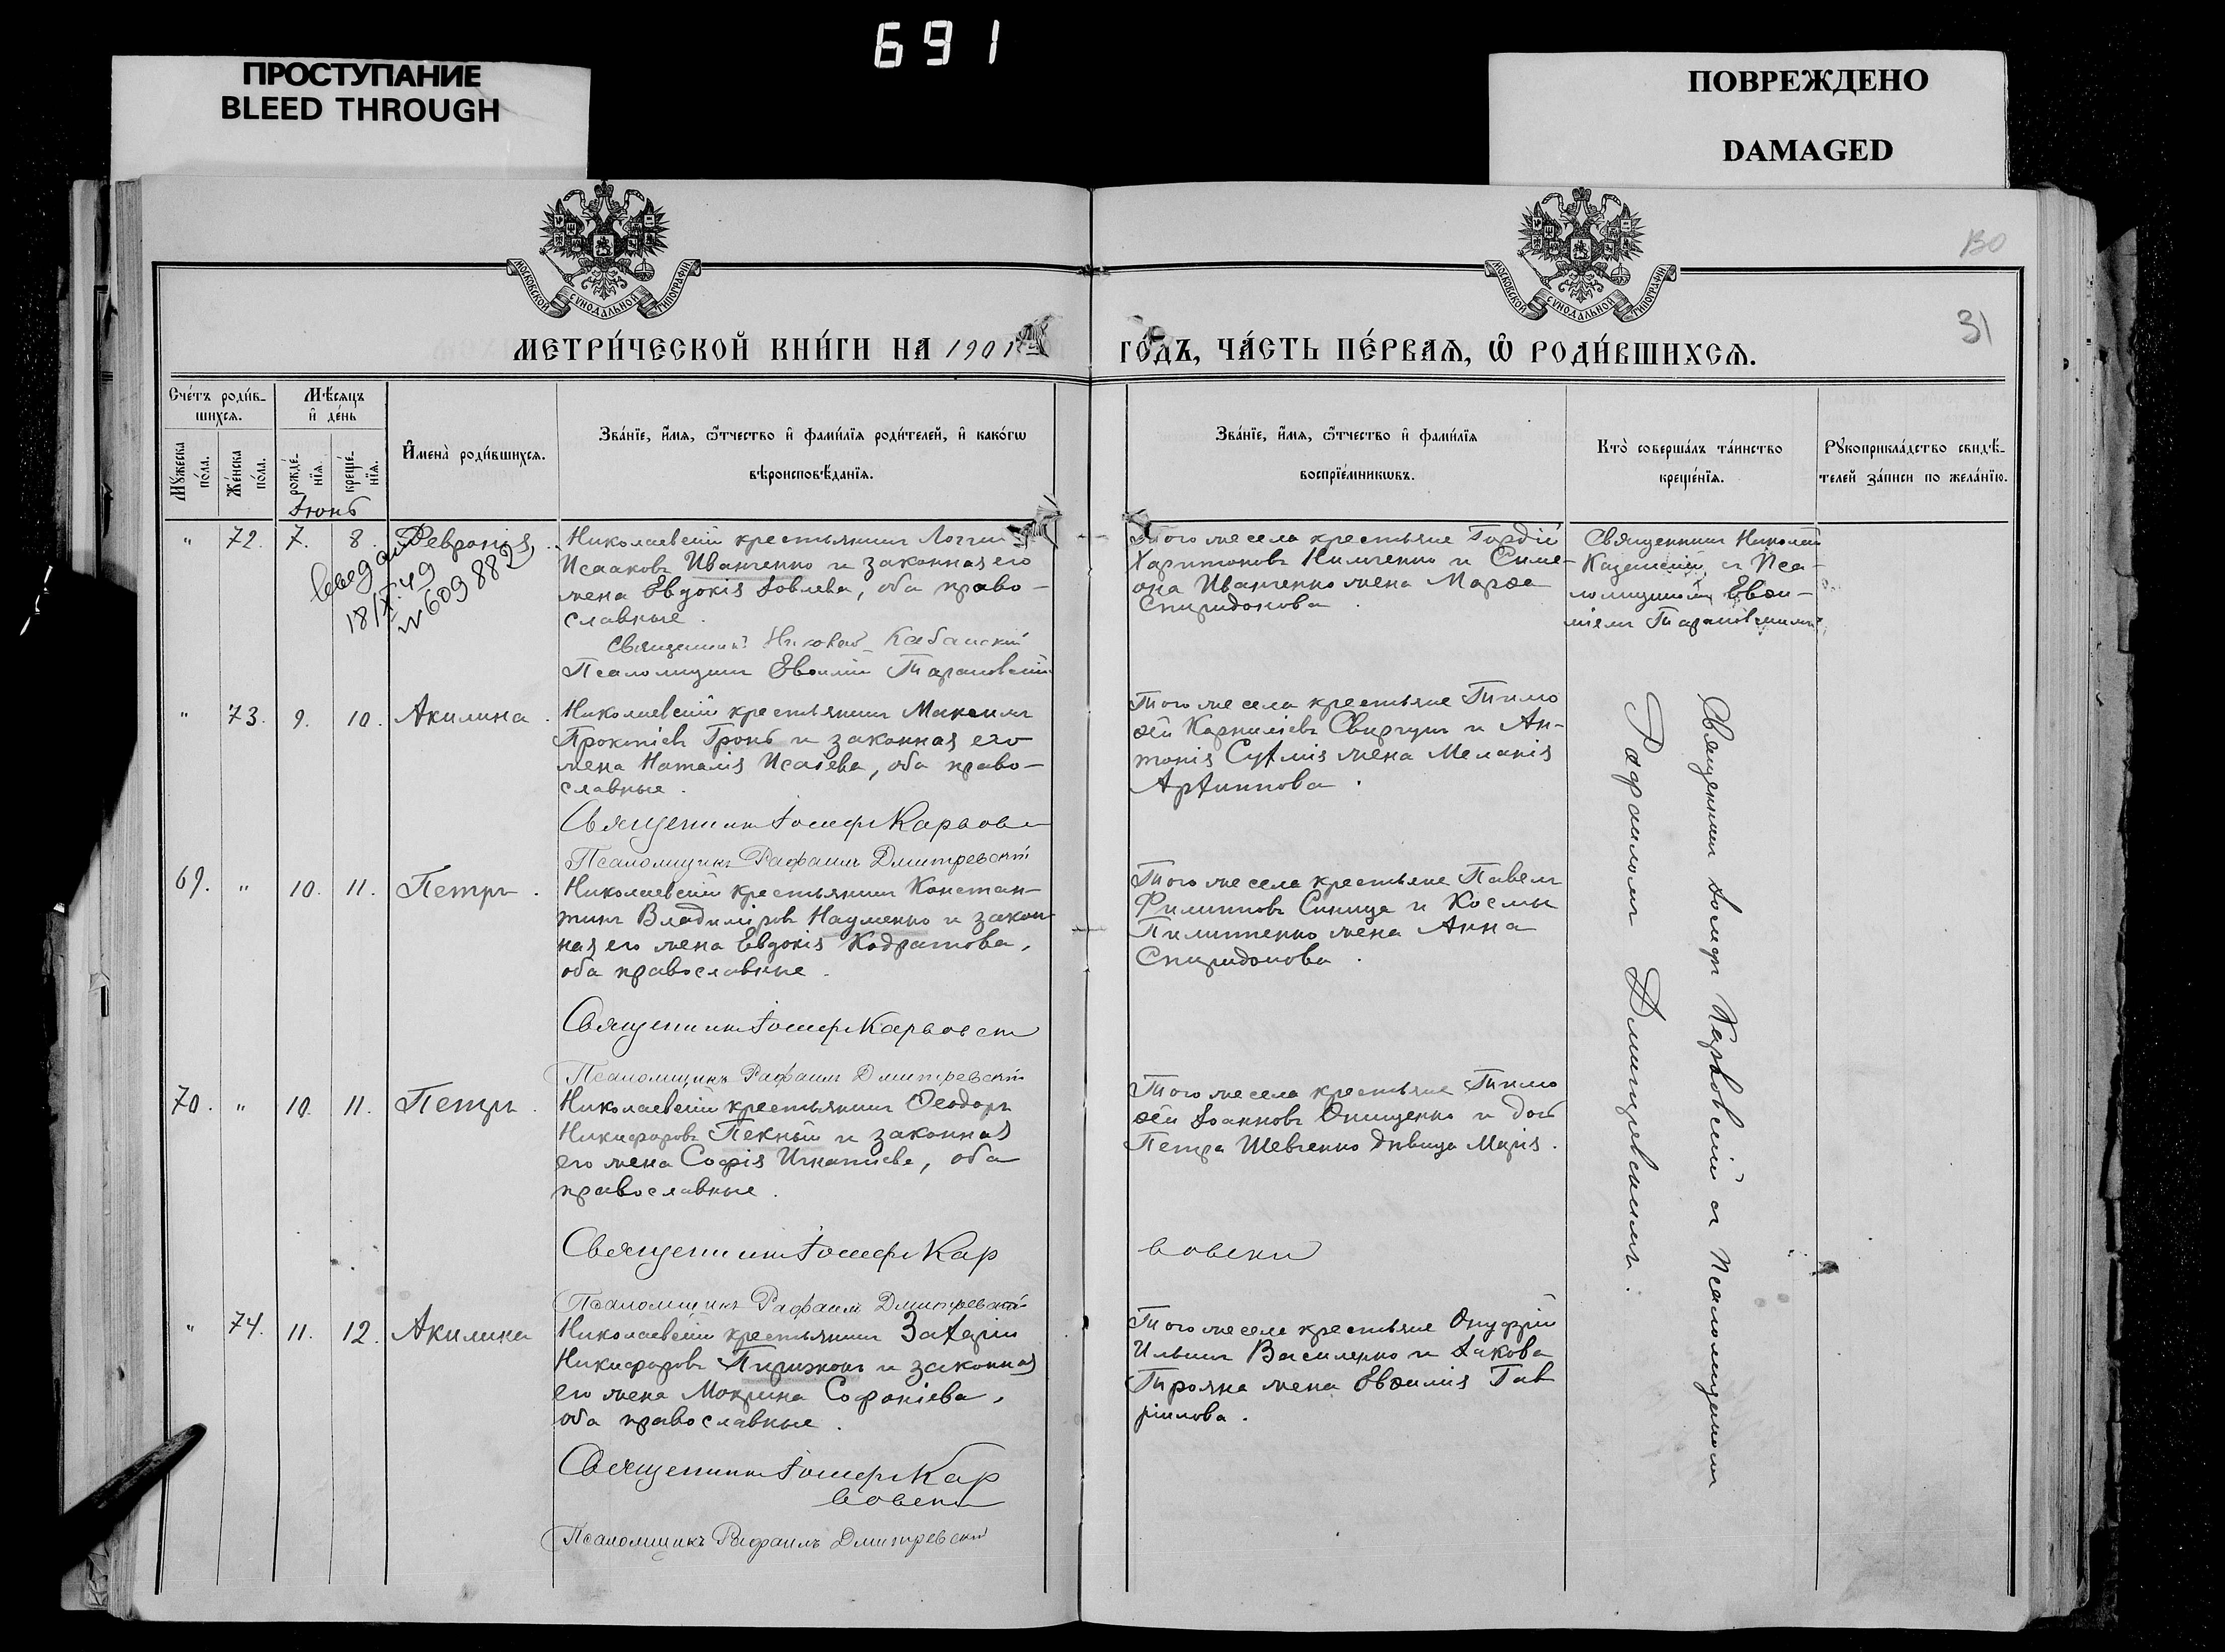 691
ПРОСТУПАНИЕ
BLEED THROUGH
ПОВРЕЖДЕНО
DAMAGED
МОСКОВСКОЙ СУНОДАЛЬНОЙ ТИПОГРАФІИ
МОСКОВСКОЙ СУНОДАЛЬНОЙ ТИПОГРАФІИ
130
31
МЕТРИ́ЧЕСКОЙ КНИ́ГИ НА 1901
ГО́ДЪ, ЧА́СТЬ ПЕ́РВАЯ, Ѡ РОДИ́ВШИХСѦ.
Сче́тъ роди́в-
шихсѧ.
Мѣ́сяцъ
и҆ де́нь
Мꙋ́жеска по́ла.
Же́нска по́ла.
рожде́-
нїѧ.
креще́-
нїѧ.
И҆мена̀ роди́вшихсѧ.
Зва́нїе, и҆́мѧ, ѻ҆́тчество и҆ фами́лїѧ роди́телей, и҆ како́гѡ
вѣроисповѣ́данїѧ.
Зва́нїе, и҆́мѧ, ѻ҆́тчество и҆ фами́лїѧ
воспрїе́мникѡвъ.
Кто̀ соверша́лъ та́инство
креще́нїѧ.
Рꙋкоприкла́дство свидѣ́-
телей за́писи по жела́нїю.
Іюнь
" 72. 7. 8. Февронія
18/X.49
№ 609882
Николаевскій крестьянинъ Логгин
Исааковъ Иванченко и законная его
жена Евдокія Іовлева, оба право-
славные.
Священникъ Николай Кабанскій
Псаломщикъ Евѳимій Тарановскій
Того же села крестьяне Гордій
Харитоновъ Климченко и Симе-
она Иванченко жена Марѳа
Спиридонова.
Священникъ Николай
съ Пса-
ломщикомъ Евѳи-
міемъ Тарановскимъ
" 73. 9. 10. Акилина.
Николаевскій крестьянинъ Максимъ
Прокопіевъ Гронь и законная его
жена Наталія Исаіева, оба право-
славные.
Священникъ Іосифъ Карвов
Псаломщикъ Рафаилъ Дмитревскій
Того же села крестьяне Тимо
ѳей Корниліевъ Свиргунъ и Ан-
тонія жена Меланія
Архиппова.
69. " 10. 11. Петръ.
Николаевскій крестьянинъ Констан-
тинъ Владиміровъ Науменко и закон-
ная его жена Евдокія Кодратова,
оба православные.
Священникъ Іосифъ Карвовски
Псаломщикъ Рафаилъ Дмитревскій
Того же села крестьяне Павелъ
Филипповъ Синица и Космы
Пилипенко жена Анна
Спиридонова.
70. " 10. 11. Петръ.
Николаевскій крестьянинъ Ѳеодоръ
Никифоровъ Пекный и законная
его жена Софія Игнатіева, оба
православные.
Священникъ Іосифъ Кар
вовски
Псаломщикъ Рафаилъ Дмитревскій
Того же села крестьяне Тимо
ѳей Іоанновъ Онищенко и дочь
Петра Шевченко дѣвица Марія.
" 74. 11. 12. Акилина
Николаевскій крестьянинъ
Никифоровъ Пирижокъ и законная
его жена Мокрина Софоніева,
оба православные.
Священникъ Іосифъ Кар
вовски
Псаломщикъ Рафаилъ Дмитревскій
Того же села крестьяне Онуфрій
Ильинъ Василенко и Іакова
Трояна жена Евѳимія Гав
ріилова.
Священникъ Іосифъ Карвовскій съ Псаломщикомъ
Рафаиломъ Дмитревскимъ.